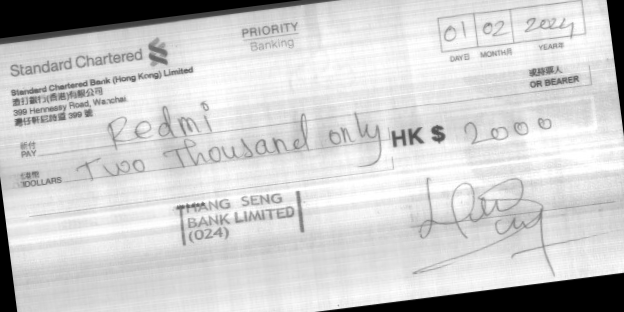 Standard Chartered
PRIORITY
Banking
01 02 2024
DAY日 MONTH月 YEAR年
Standard Chartered Bank (Hong Kong) Limited
渣打銀行(香港)有限公司
399 Hennessy Road, Wanchai
灣仔軒尼詩道 399 號
或持票人
OR BEARER
祈付
PAY
Redmi
港幣
DOLLARS
Two Thousand only
HK $ 2000
HANG SENG
BANK LIMITED
(024)